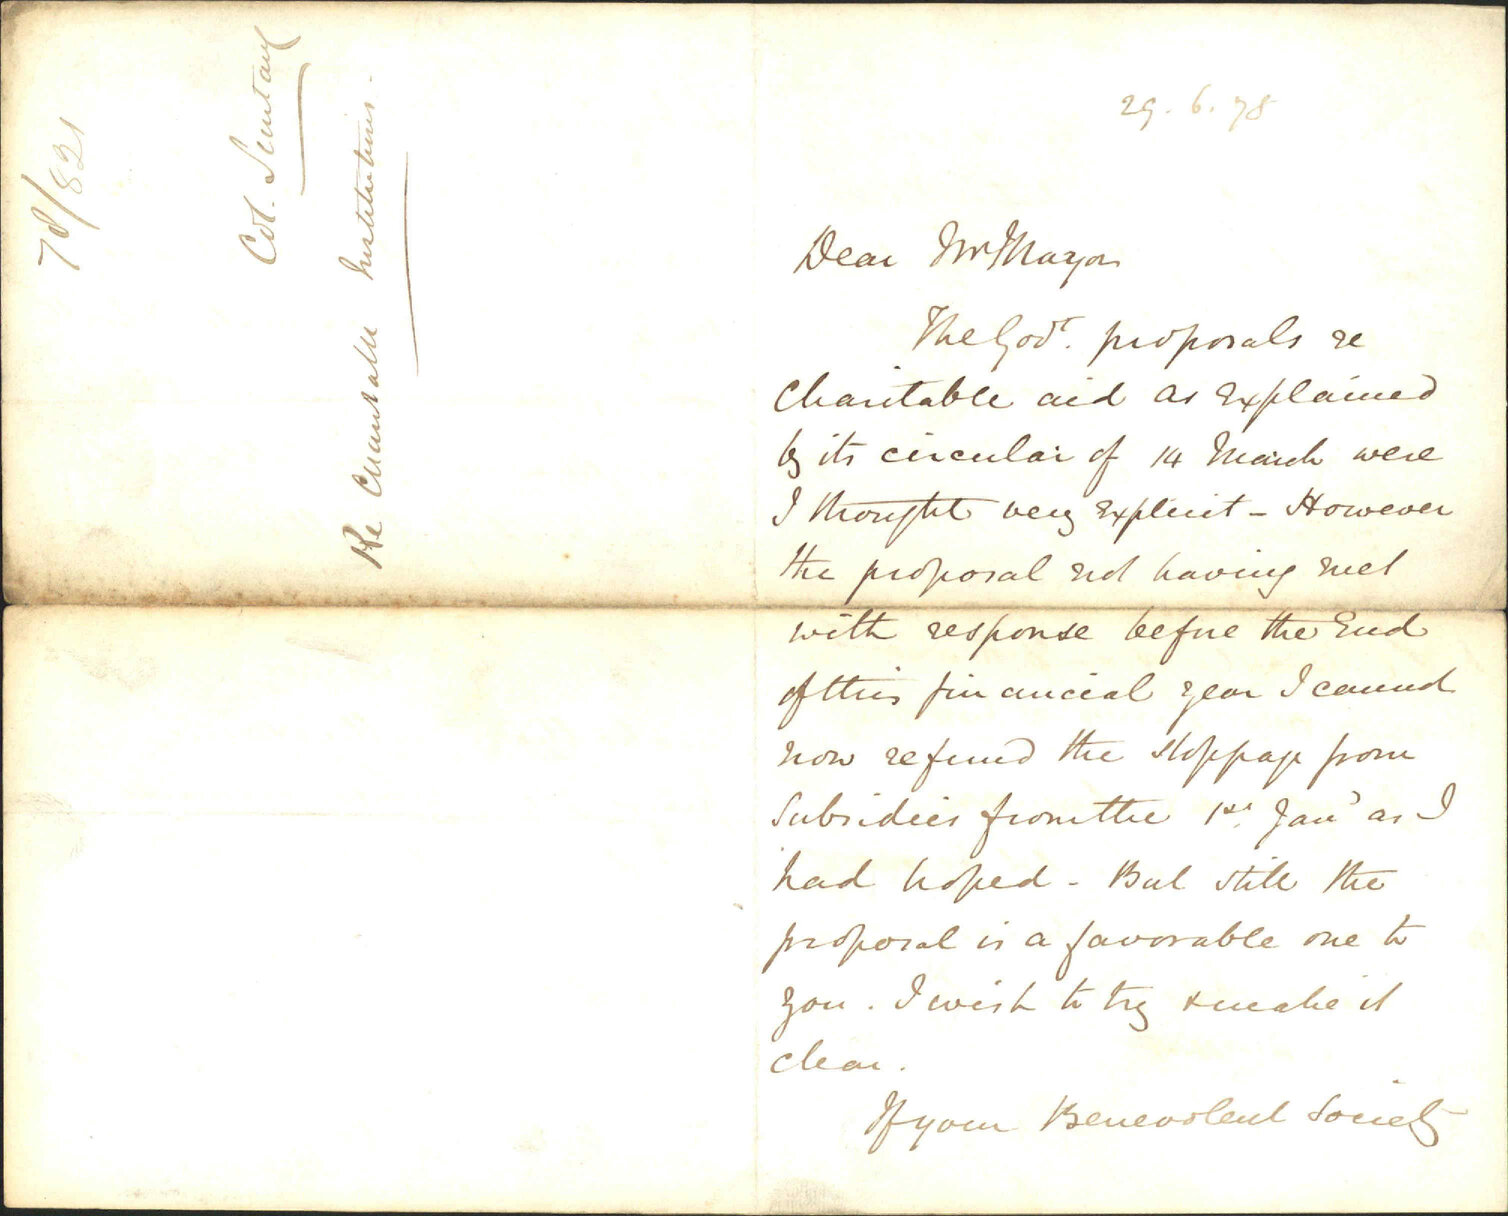 78/821
Col. Secretary
Re Charitable Institutions.
29. 6. 78
Dear Mr Mayor
The Govt. proposals re
Charitable aid as explained
by its circular of 14 March were
I thought very explicit - However
the proposal not having met
with response before the End
of this financial year I cannot
now refund the stoppage from
Subsidies from the 1st. Jany as I
had hoped - But still the
proposal is a favorable one to
you. I wish to try & make it
clear.
If your Benevolent Society